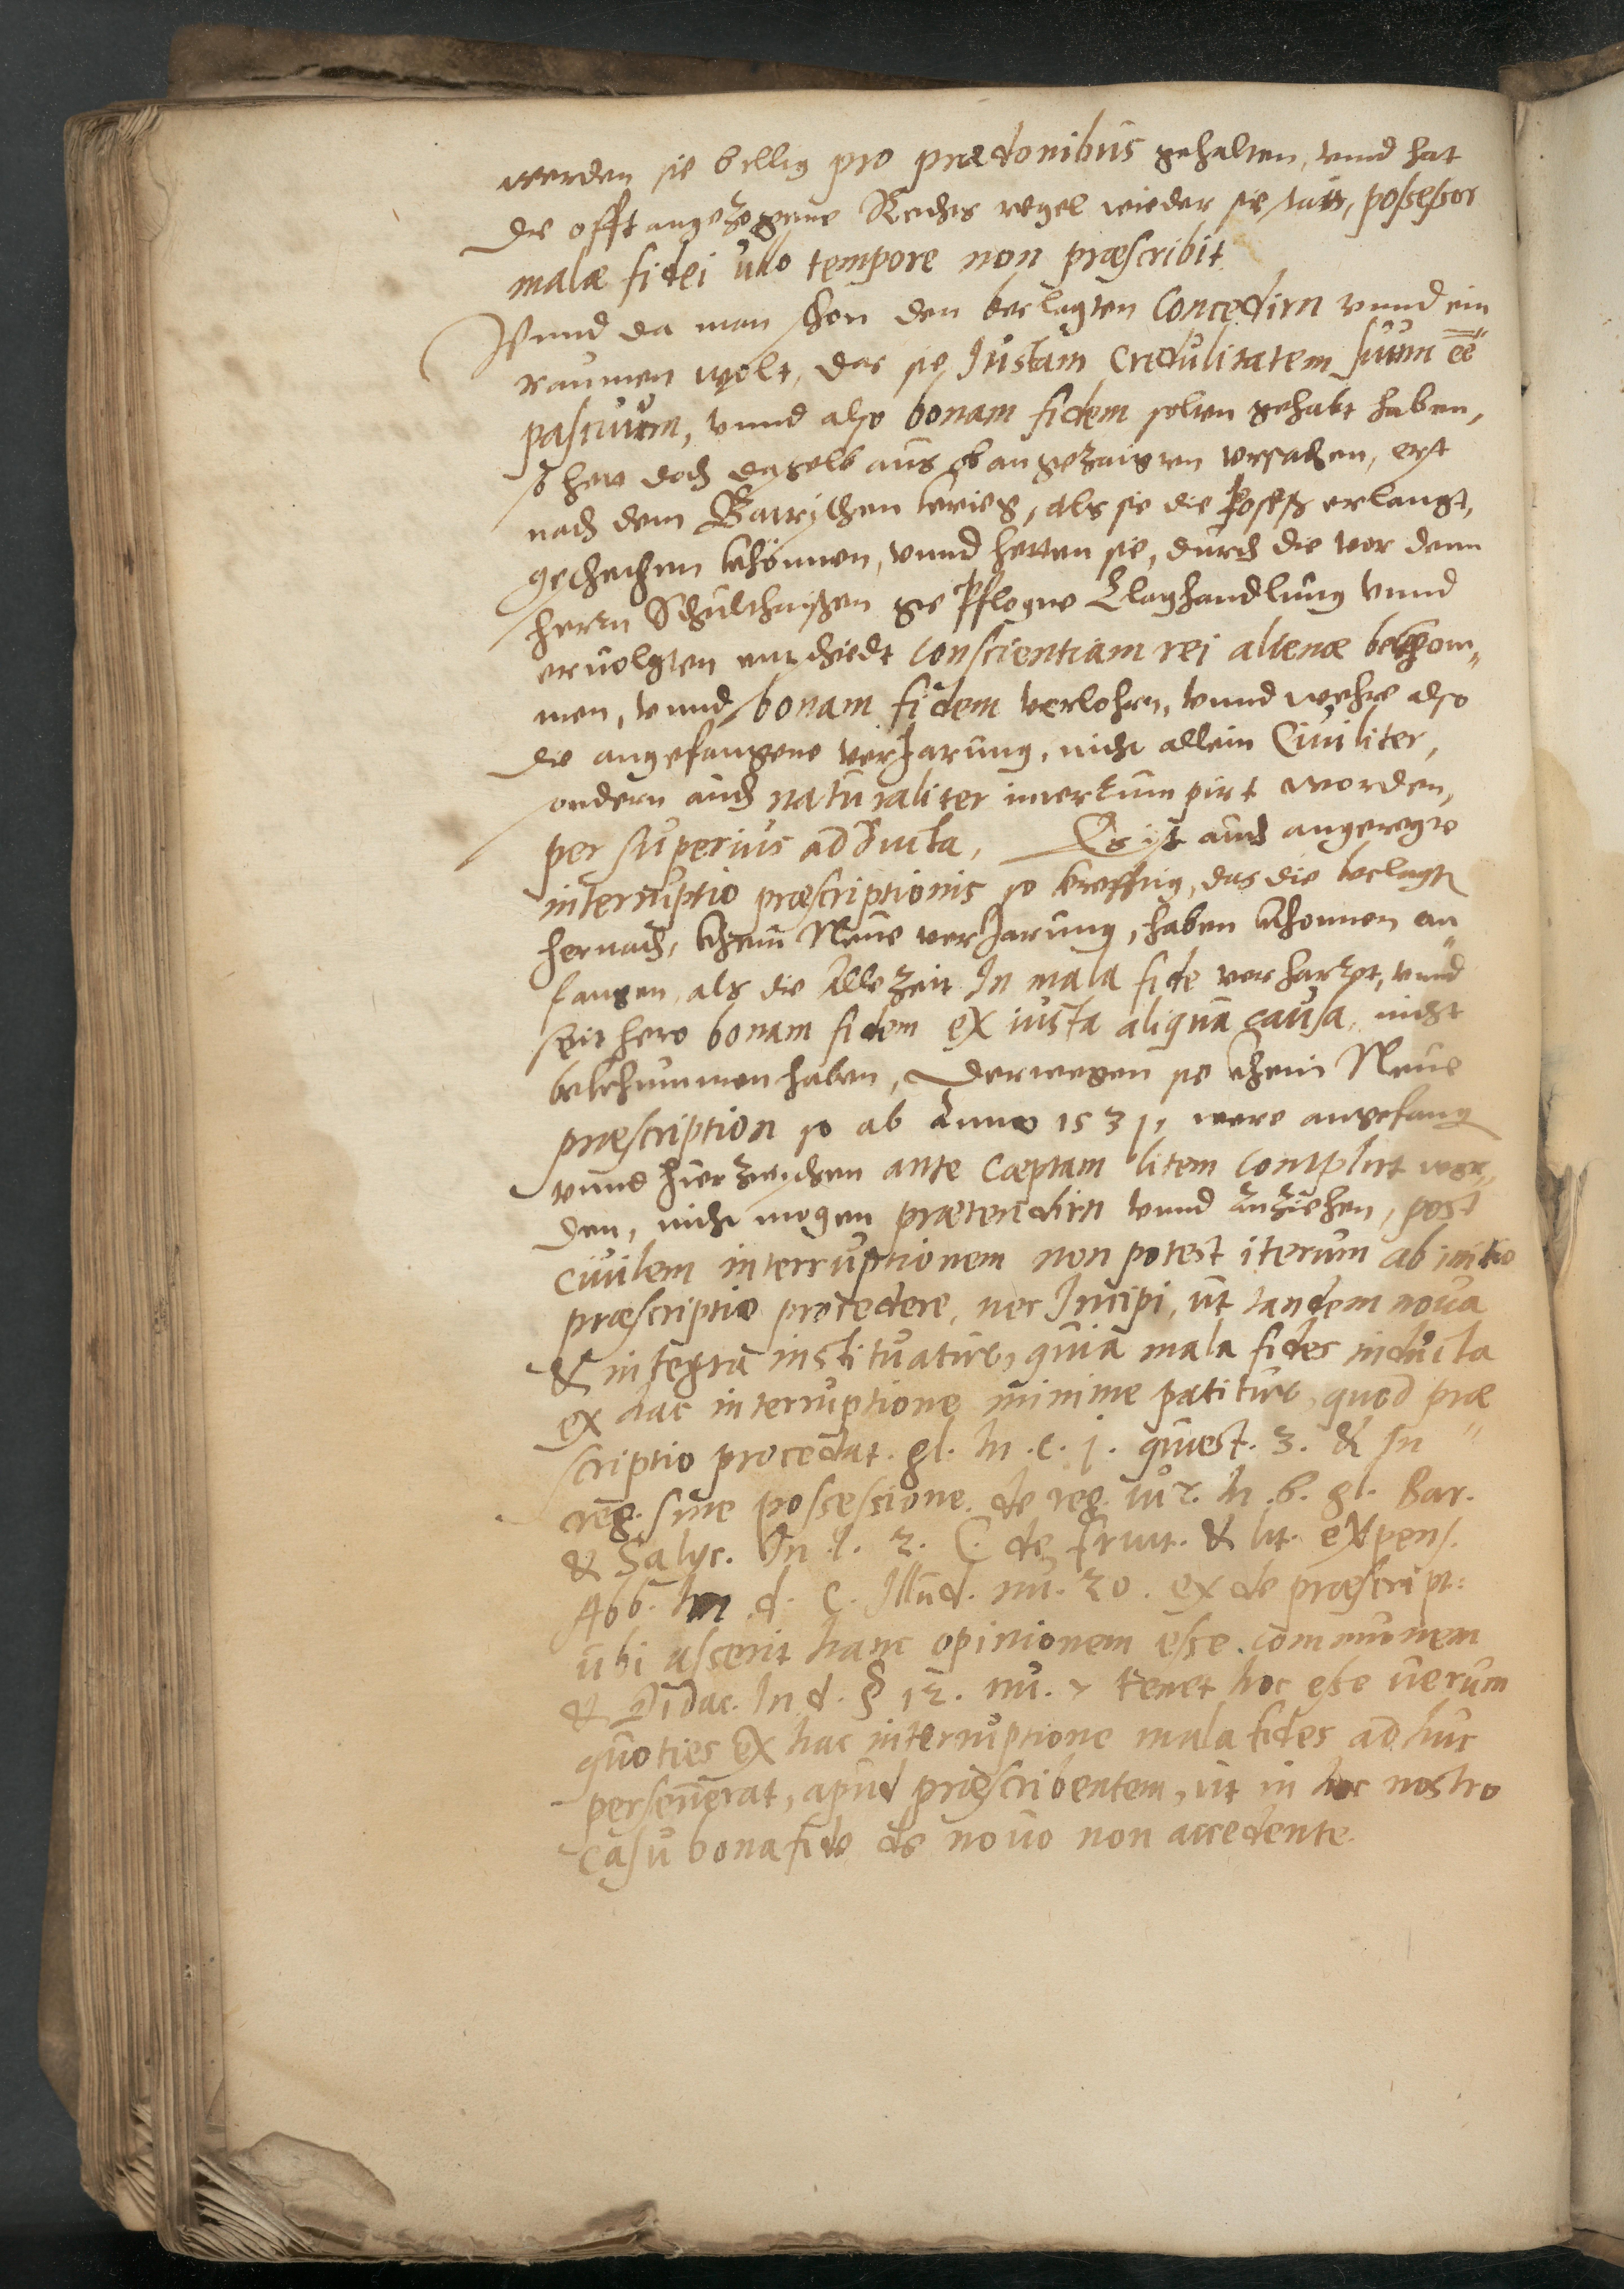 werden sie billig pro prædonibus gehalten, vnnd hat
die offt angezogene Rechts regel wieder sie stat, possessor
malæ fidei ullo tempore non præscribit
Vnnd da man schon den beclagten Concedirn vnnd ein
raumen wolt, das sie Iustam Credulitatem suum ee
pascuum, vnnd also bonam fidem solten gehabt haben,
so hett doch dasselb aus ob angezaigten vrsachen, erst
nach dem Baurischen krieg, als sie die Possess erlangt,
geschechen khönnen, vnnd hetten sie, durch die vor dem
herrn Schulthaissen gepflogne Claghandlung vnnd
ervolgten entschiedt Conscientiam rei alienæ bekhom„
men, vnnd bonam fidem verlohrn, vnnd wehre also
die angefangene verJarung, nicht allein Ciuiliter,
sondern auch naturaliter interrumpirt worden,
per superius adducta, Es ist auch angeregte
interruptio præscriptionis so krefftig, das die beclagte
hernach, khein Neue verJarung, haben khonnen an„
fangen, als die Allezeit In mala fide verharret, vnnd
seithero bonam fidem ex iusta aliqua causa, nicht
bekhummen haben, Derwegen sie khein Neue
præscription so ab Anno 1531, were angefang
vnnd hierzwischen ante Cæptam litem Complirt wor„
den, nicht mogen prætendirn vnnd anziehen, post
ciuilem interruptionem non potest iterum ab initio
præscriptio procedere, nec Incipi, ut tandem noua
& integra instituatur, quia mala fides inducta
ex hac interruptione minime patitur, quod præ„
scriptio procedat. gl. In. c. j. quæst. 3. & In
reg. sine possessione. de reg. iur. In .6. gl. Bar.
& Salyc. In .l. 2. C. de fruct. & lit. expens.
Abb. In d. C. Illud. nu. 20. ex de præscript:
ubi asserit hanc opinionem esse communem
& Didac. In d. § 12. nu. 7 tenet hoc esse uerum
quoties ex hac interruptione mala fides ad huc
perseuerat, apud præscribentem, ut in hoc nostro
casu bona fide de nouo non accedente.